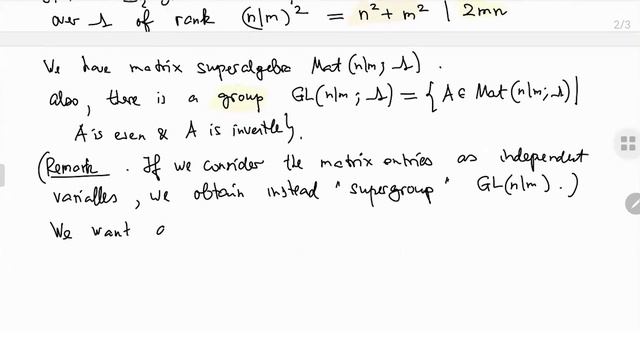 over Λ of rank (n|m)² = n² + m² | 2mn
2/3
We have matrix superalgebra Mat(n|m; Λ).
also, there is a group GL(n|m; Λ) = { A ∈ Mat(n|m; Λ) |
A is even & A is invertle}.
(Remark. If we consider the matrix entries as independent
variables, we obtain instead "supergroup" GL(n|m).)
We want a